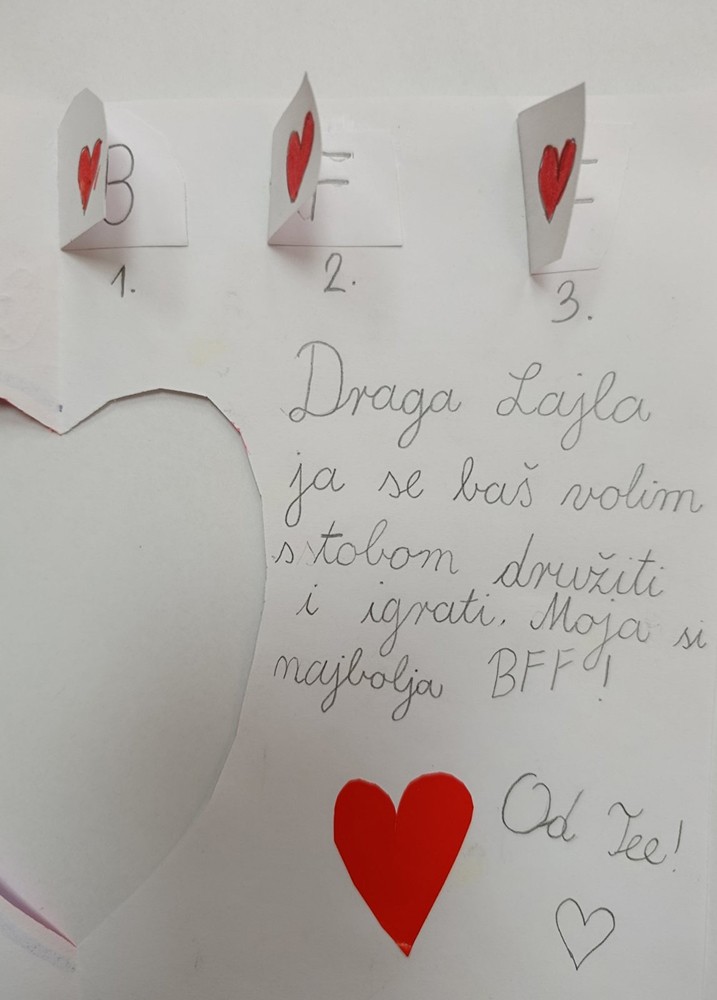 B F F
1. 2. 3.
Draga Lajla
ja se baš volim
s tobom družiti
i igrati. Moja si
najbolja BFF!
Od Tee!